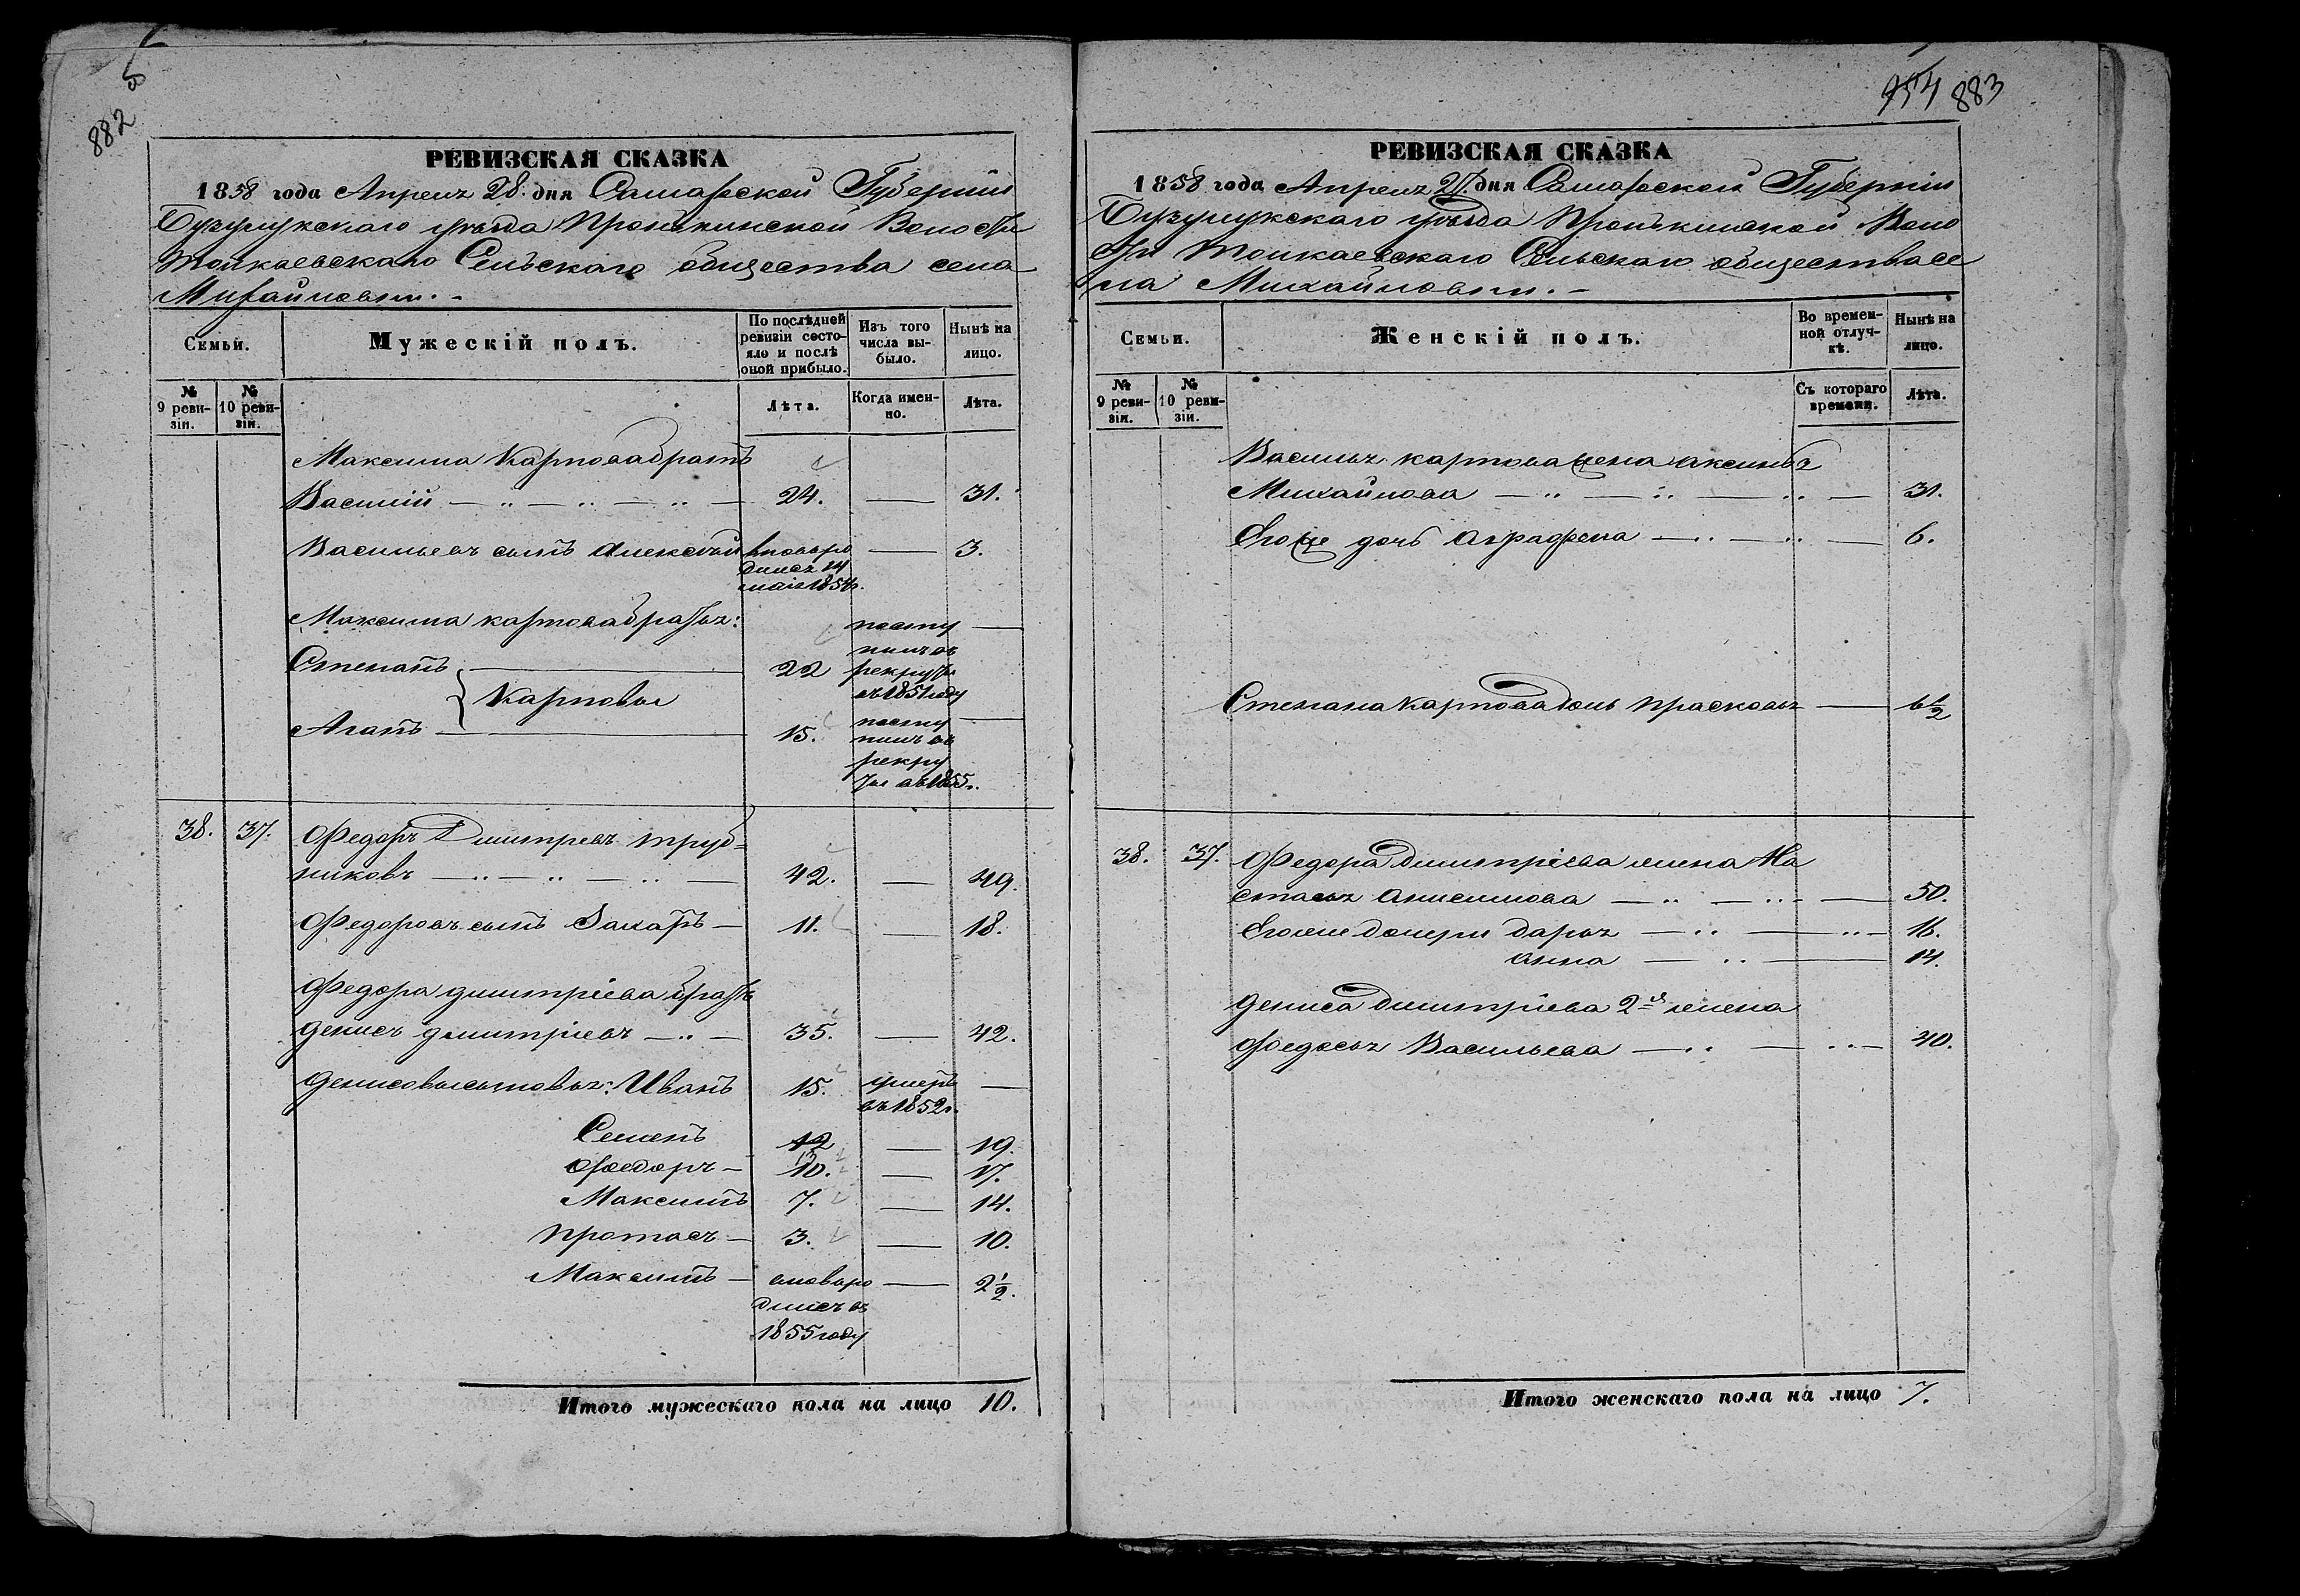 882
РЕВИЗСКАЯ СКАЗКА
1858 года Апреля 28 дня Самарской Губернiи
Бузулукскаго уѣзда Пронькинской Волости
Токаевскаго Сельскаго общества села
Михайловки. -
Семьи.
Мужескiй полъ.
По послѣдней ревизiи состояло и послѣ оной прибыло.
Изъ того числа выбыло.
Нынѣ на лицо.
№ 9 ревизiи.
№ 10 ревизiи.
Лѣта.
Когда именно.
Лѣта.
Максима Карпова братъ
Василiй 24. — 31.
Васильевъ сынъ Алексѣй вновь родился 14 маiя 1854г. — 3.
Максима Карпова братья:
Степанъ 22 поступилъ въ рекруты въ 1851 году —
Карповы
Агапъ 15. поступилъ въ рекруты въ 1855г. —
38. 37. Федоръ Димитревъ Труб=
никовъ 42. — 49.
Федоровъ сынъ Захаръ — 11. — 18.
Федора димитрiева братъ
денисъ димитрiевъ 35. — 42.
денисовы сыновья: Иванъ 15. умеръ въ 1852г. —
Семенъ 12 — 19.
Федоръ — 10. — 17.
Максимъ 7. — 14.
Протасъ — 3. — 10.
Максимъ — вновь родился въ 1855 году — 2½.
Итого мужескаго пола на лицо 10.
954 883
РЕВИЗСКАЯ СКАЗКА
1858 года Апреля дня Самарской Губернiи
Бузулукскаго уѣзда Пронькинской Воло
сти Токаевскаго Сельскаго общества се
ла Михайловки. -
Семьи.
Женскiй полъ.
Во временной отлучкѣ.
Нынѣ на лицо.
№ 9 ревизiи.
№ 10 ревизiи.
Съ котораго времени.
Лѣта.
Василья карпова жена аксинья
Михайлова — 31.
Егоже дочь аграфена — 6.
Степана Карпова дочь прасковья — 6½
38. 37. Федора димитрiева жена На
стасья анисимова — 50.
Егоже дочери дарья — 16.
анна — 14.
дениса димитрiева 2я жена
федосья Васильева — 40.
Итого женскаго пола на лицо 7.